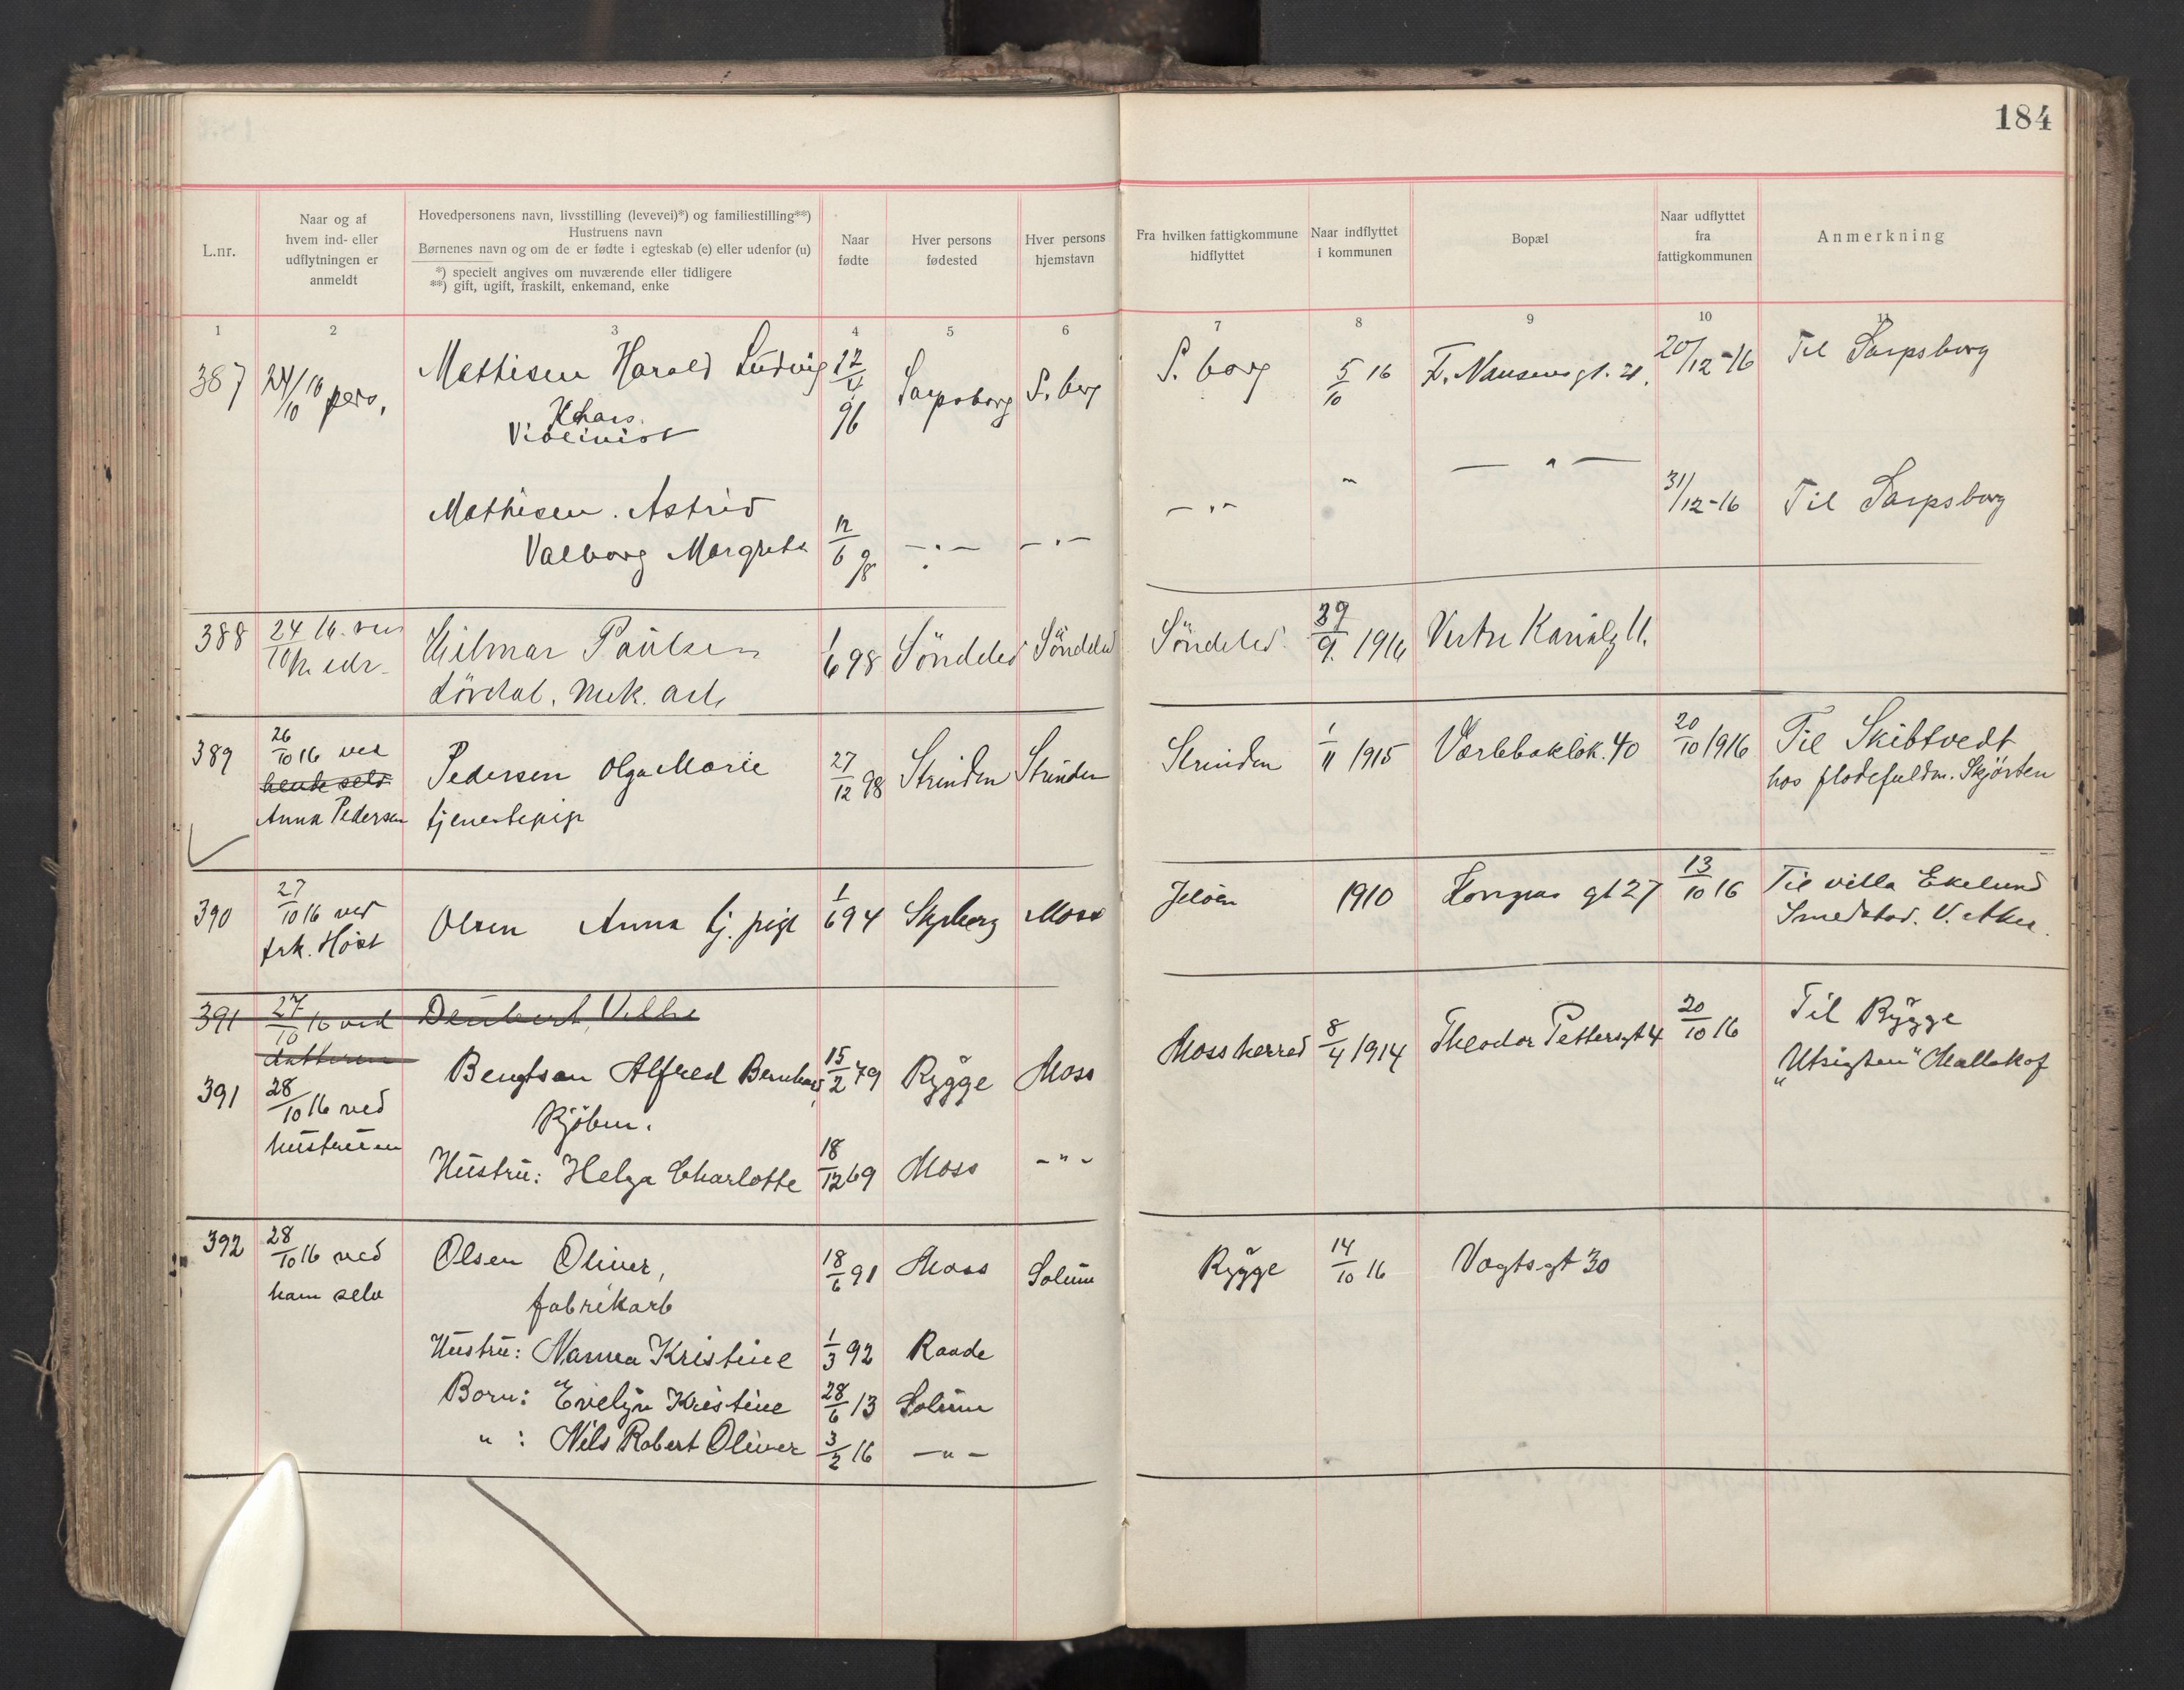 184
L.nr.
Naar og af
hvem ind- eller
udflytningen er
anmeldt
Hovedpersonens navn, livsstilling (levevei)*) og familiestilling**)
Hustruens navn
Børnenes navn og om de er fødte i egteskab (e) eller udenfor (u)
*) specielt angives om nuværende eller tidligere
**) gift, ugift, fraskilt, enkemand, enke
Naar
fødte
Hver persons
fødested
Hver persons
hjemstavn
Fra hvilken fattigkommune
hidflyttet
Naar indflyttet
i kommunen
Bopæl
Naar udflyttet
fra
fattigkommunen
Anmerkning
1 2 3 4 5 6 7 8 9 10 11
387 24/10 16 pers. Mathisen Harald Ludvig 96 Sarpsborg S. borg S. borg 5/10 16 F. Nansensgt. 21. 20/12-16 Til Sarpsborg
Violinist
Mathisen. Astrid — " — " — " — 31/12-16 Til Sarpsborg
Valborg Margrete 12/6 98 — " — — " —
388 24/10 16. Hilmar Paulsen 1/6 98 Söndeled Söndeled Söndeled 9. 1916 Vestre Kanalg 11.
Lövdal. mek. arb.
389 26/10 16 ved Pedersen Olga Marie 27/12 98 Strinden Strinden Strinden 1/11 1915 Varlebakløk. 40 20/10 1916 Til Skibtvedt
hende selv hos flødefuldm. Skjörten
Anna Pedersen tjenestepige
390 27/10 16 ved Olsen Anna tj. pige 1/6 94 Skjeberg Moss Jeløen 1910 Kongens gt 27 13/10 16 Til villa Ekelund
frk. Høst Smedstad. V. Aker.
391 27/10 16 ved
datteren
391 28/10 16 ved Bengtson Alfred Bernhard 15/2 79 Rygge Moss Moss herred 8/4 1914 Theodor Pettersgt 4 20/10 16 Til Rygge
"Utsigten" Mallakof
hustruen Kjöbm.
Hustru: Helga Charlotte 18/12 69 Moss — " —
392 28/10 16 ved Olsen Oliver, 18/6 91 Moss Solum Rygge 14/10 16 Vogtsgt 30
ham selv fabrikarb
Hustru: Nanna Kristine 1/3 92 Raade
Born: Evelyn Kristine 28/6 13 Solum
" : Nils Robert Oliver 3/2 16 — " —